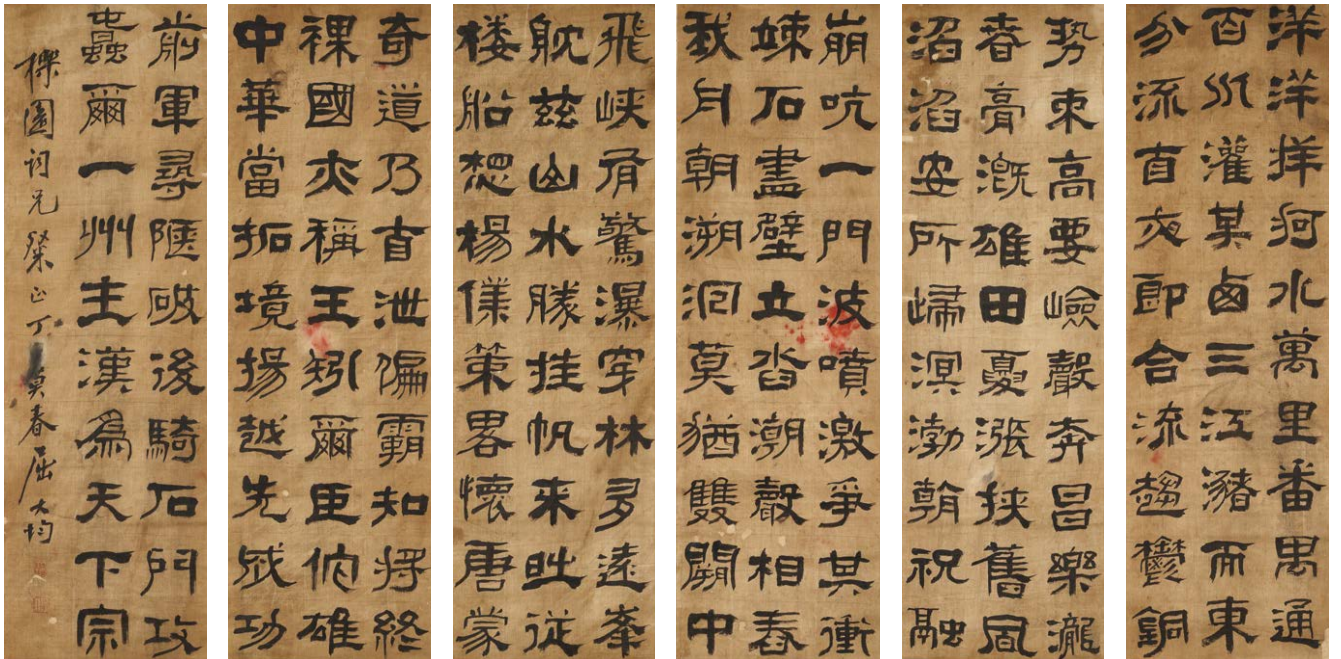 洋洋牂柯水萬里番禺通
百川灌其鹵三江瀦而東
分流自夜郎合流趨鬱銅
勢束高要嶮聲奔昌樂瀧
春膏溉雄田夏漲挾舊風
滔滔安所歸溟渤朝祝融
崩吭一門波噴激爭其衝
竦石盡壁立沓潮聲相舂
我舟朝溯洄莫猶雙闕中
飛峽有驚瀑穿林多遠峯
耽茲山水勝挂帆來眺從
樓船想楊僕策畧懷唐蒙
奇道乃自泄偏霸知將終
裸國亦稱王矧爾臣佗雄
中華當拓境揚越先成功
前軍尋陿破後騎石門攻
蠢爾一州主漢爲天下宗
櫟園詞兄粲正丁寅春屈大均